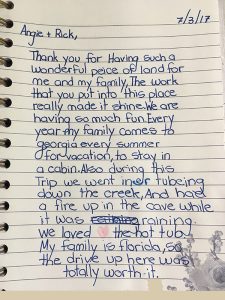 7/3/17
Angie + Rick,
Thank you for Having such a
wonderful peace of land for
me and my family. The work
that you put into this place
really made it shine. We are
having so much fun. Every
year my family comes to
georgia every summer
for vacation, to stay in
a cabin. Also during this
Trip we went inner tubeing
down the creek, And had
a fire up in the cave while
it was raining.
we loved the hot tub.
My family is florida, so
the drive up here was
totally worth it.